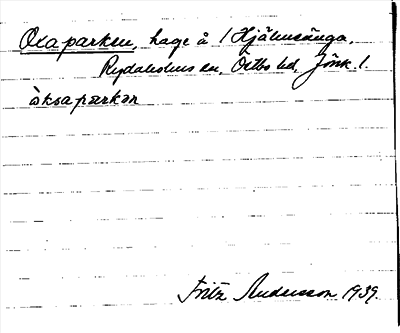 Oxaparken, hage å 1 Hjälmsänga,
Rydaholms sn, Östbo hd, Jönk. l.
òksaparkən
Fritz Andersson 1939.